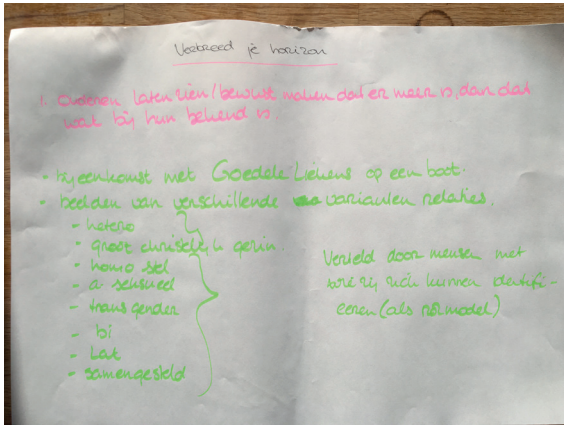 Verbreed je horizon
1. Ouderen laten zien/bewust maken dat er meer is, dan dat
wat bij hun bekend is.
- bijeenkomst met Goedele Liekens op een boot.
- beelden van verschillende varianten relaties.
- hetero
- groot christelijk gezin.
- homo stel
- a seksueel
- transgender
- bi
- Lat
- samengesteld
Verteld door mensen met
wie zij zich kunnen identifi-
ceren (als rolmodel)